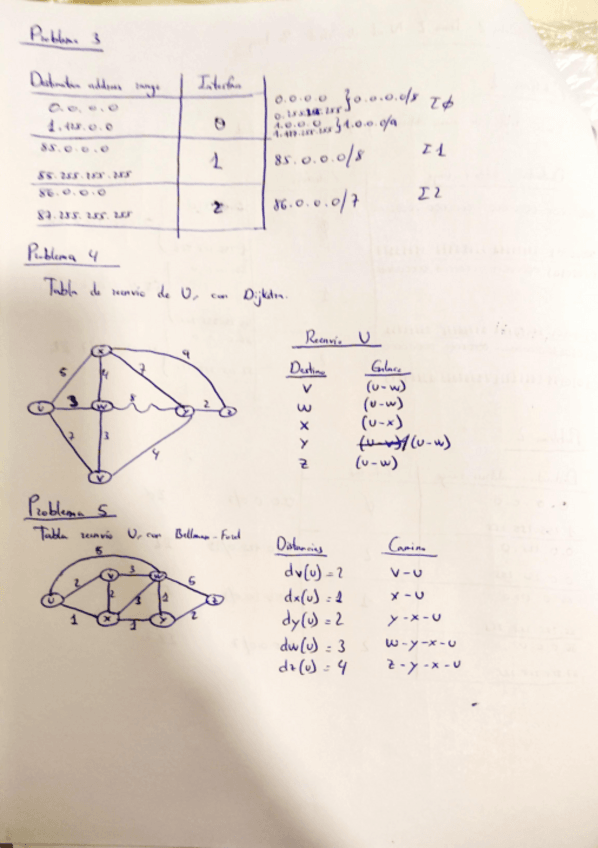 Problema 3
Destination address range Interfaz
0.0.0.0
1.128.0.0
0
0.0.0.0
0.255.255.255 } 0.0.0.0/8 I0
1.0.0.0
1.127.255.255 } 1.0.0.0/9
85.0.0.0
85.255.255.255
1
85.0.0.0/8 I1
86.0.0.0
87.255.255.255
2
86.0.0.0/7 I2
Problema 4
Tabla de reenvío de U, con Dijkstra.
x
u
w
y
z
v
5
4
7
9
3
8
2
7
3
4
Reenvío U
Destino Enlace
V (U-W)
W (U-W)
X (U-X)
Y (U-W)
Z (U-W)
Problema 5
Tabla reenvío U, con Bellman-Ford
5
u
v
w
x
y
z
2
3
5
2
3
1
1
1
2
Distancias Camino
dv(u) = 2 V-U
dx(u) = 1 X-U
dy(u) = 2 Y-X-U
dw(u) = 3 W-Y-X-U
dz(u) = 4 Z-Y-X-U